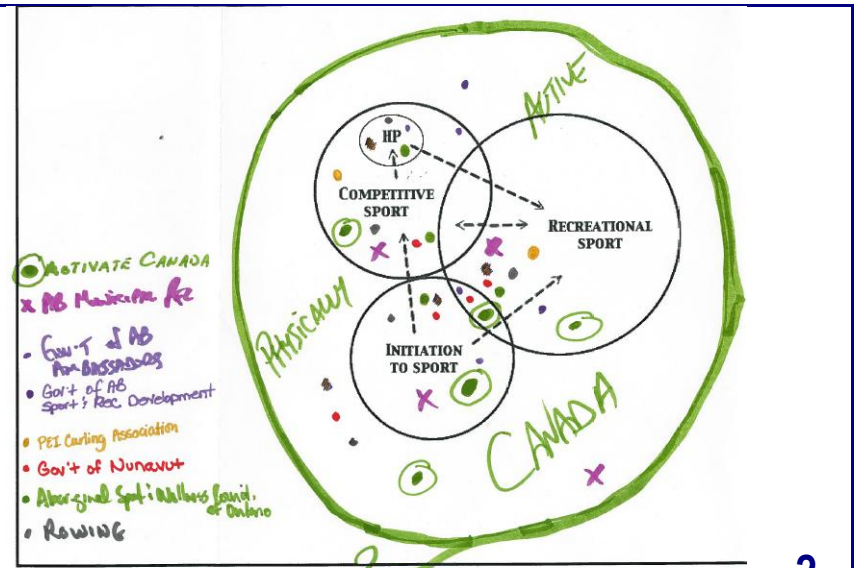 ACTIVE
HP
COMPETITIVE
SPORT
RECREATIONAL
SPORT
PHYSICALLY
INITIATION
TO SPORT
CANADA
ACTIVATE CANADA
x AB Municipal
Gov't of AB
AMBASSADORS
Gov't of AB
Sport & Rec Development
PEI Curling Association
Gov't of Nunavut
Aboriginal Sport & Wellness Council
of Ontario
ROWING